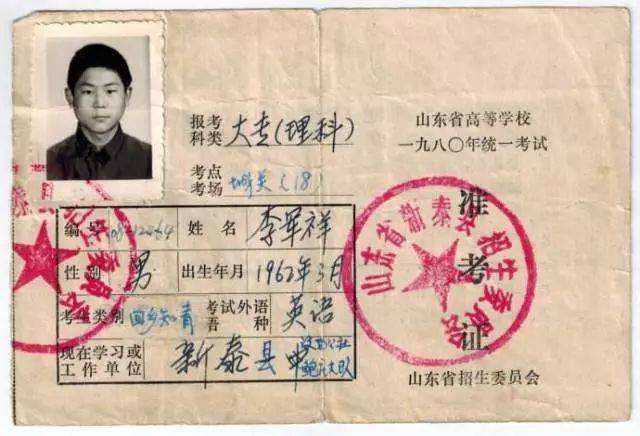 报考科类 大专(理科)
考点考场 城关(18)
编号 姓名 李军祥
性别 男 出生年月 1962年3月
考生类别 回乡知青 考试外语语种 英语
现在学习或工作单位 新泰县
山东省高等学校
一九八〇年统一考试
准考证
山东省新泰县招生委员会
山东省招生委员会